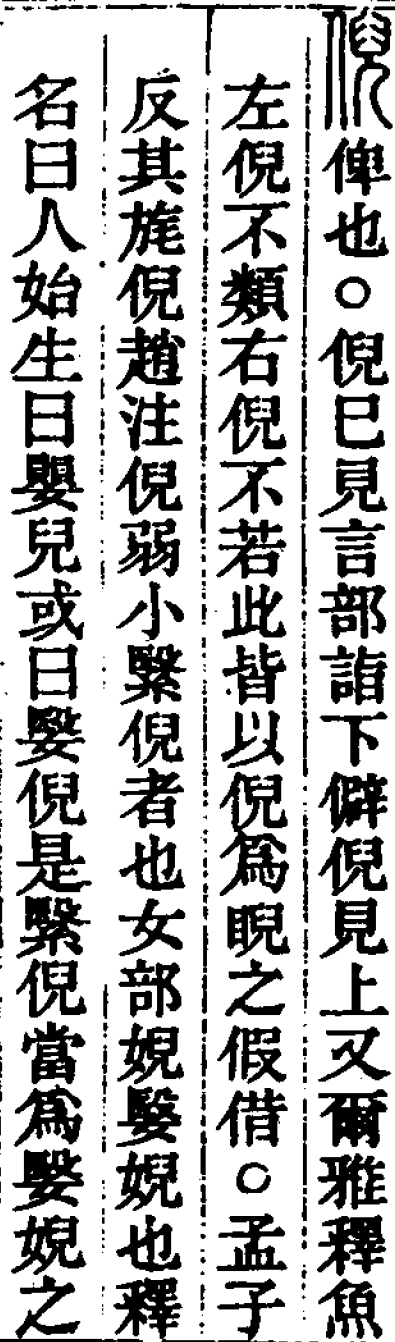 倪俾也○倪已見言部詣下僻倪見上又爾雅釋魚
左倪不類右倪不若此皆以倪爲睨之假借○孟子
反其旄倪趙注倪弱小繄倪者也女部婗嫛婗也釋
名曰人始生曰嬰兒或曰嫛倪是繄倪當爲嫛婗之